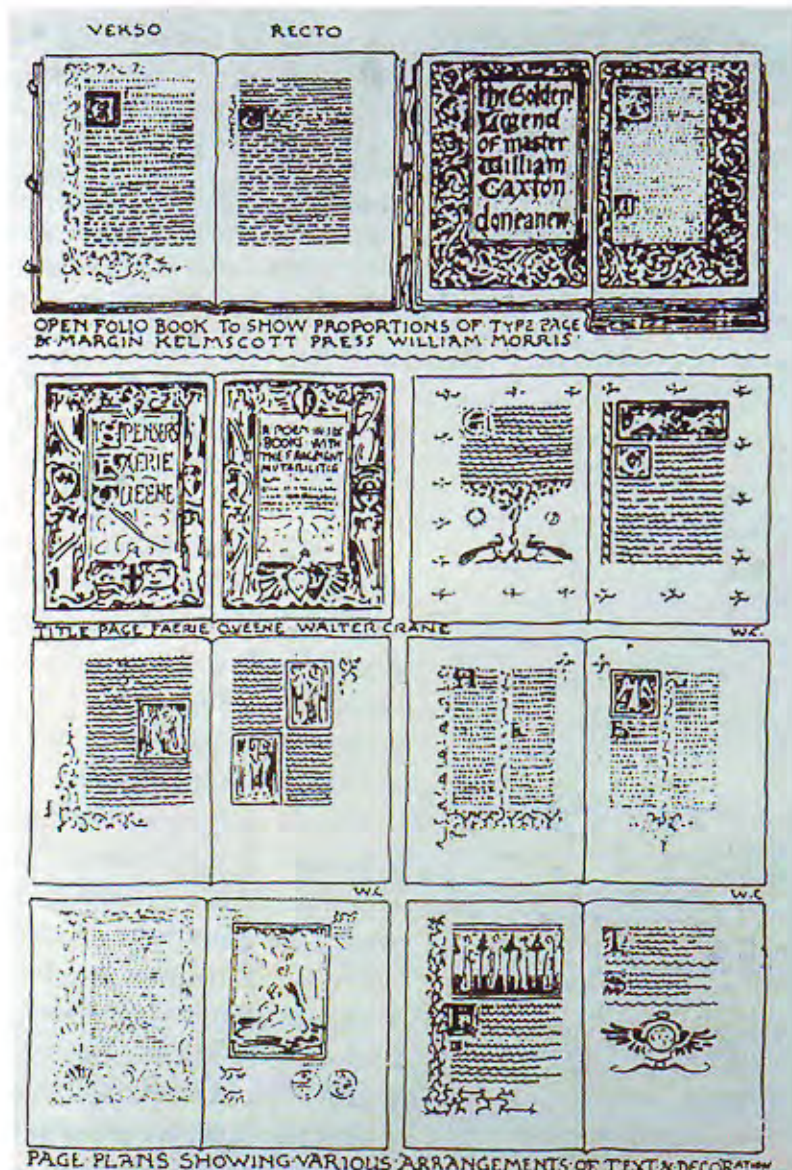 VERSO RECTO
The Golden
Legend
of master
William
Caxton
done anew.
OPEN FOLIO BOOK TO SHOW PROPORTIONS OF TYPE PAGE
& MARGIN KELMSCOTT PRESS WILLIAM MORRIS.
SPENSERS
FAERIE
QUEENE
A POEM IN SIX
BOOKS WITH
THE FRAGMENT
MUTABILITIE
TITLE PAGE FAERIE QUEENE WALTER CRANE
W.C.
W.C.
W.C
PAGE PLANS SHOWING VARIOUS ARRANGEMENTS OF TEXT & DECORATION